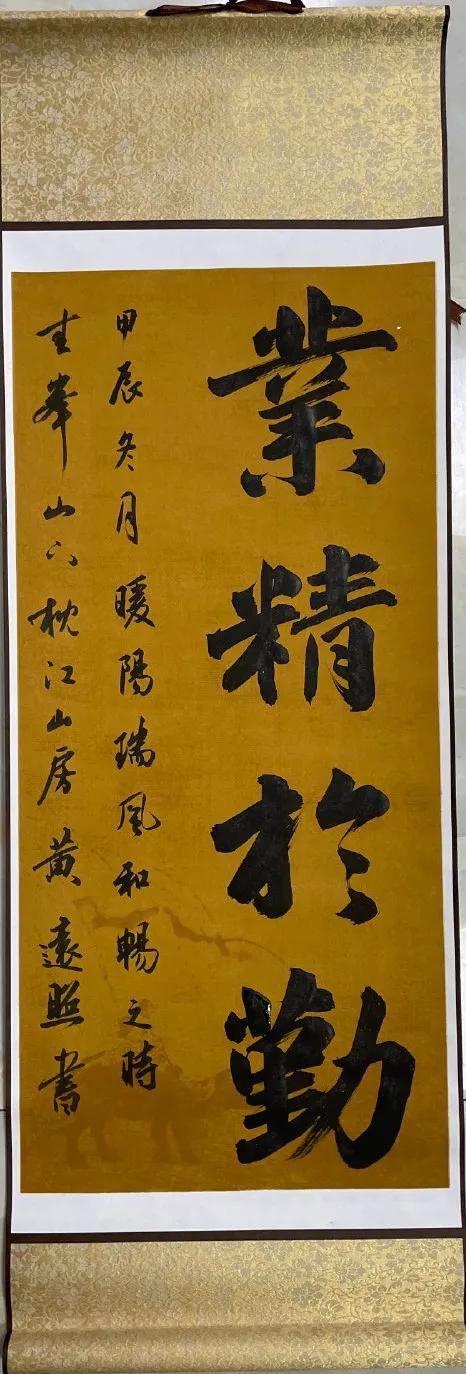 業精於勤
甲辰冬月暖陽瑞風和暢之時
圭峯山下枕江山房黄遠照書